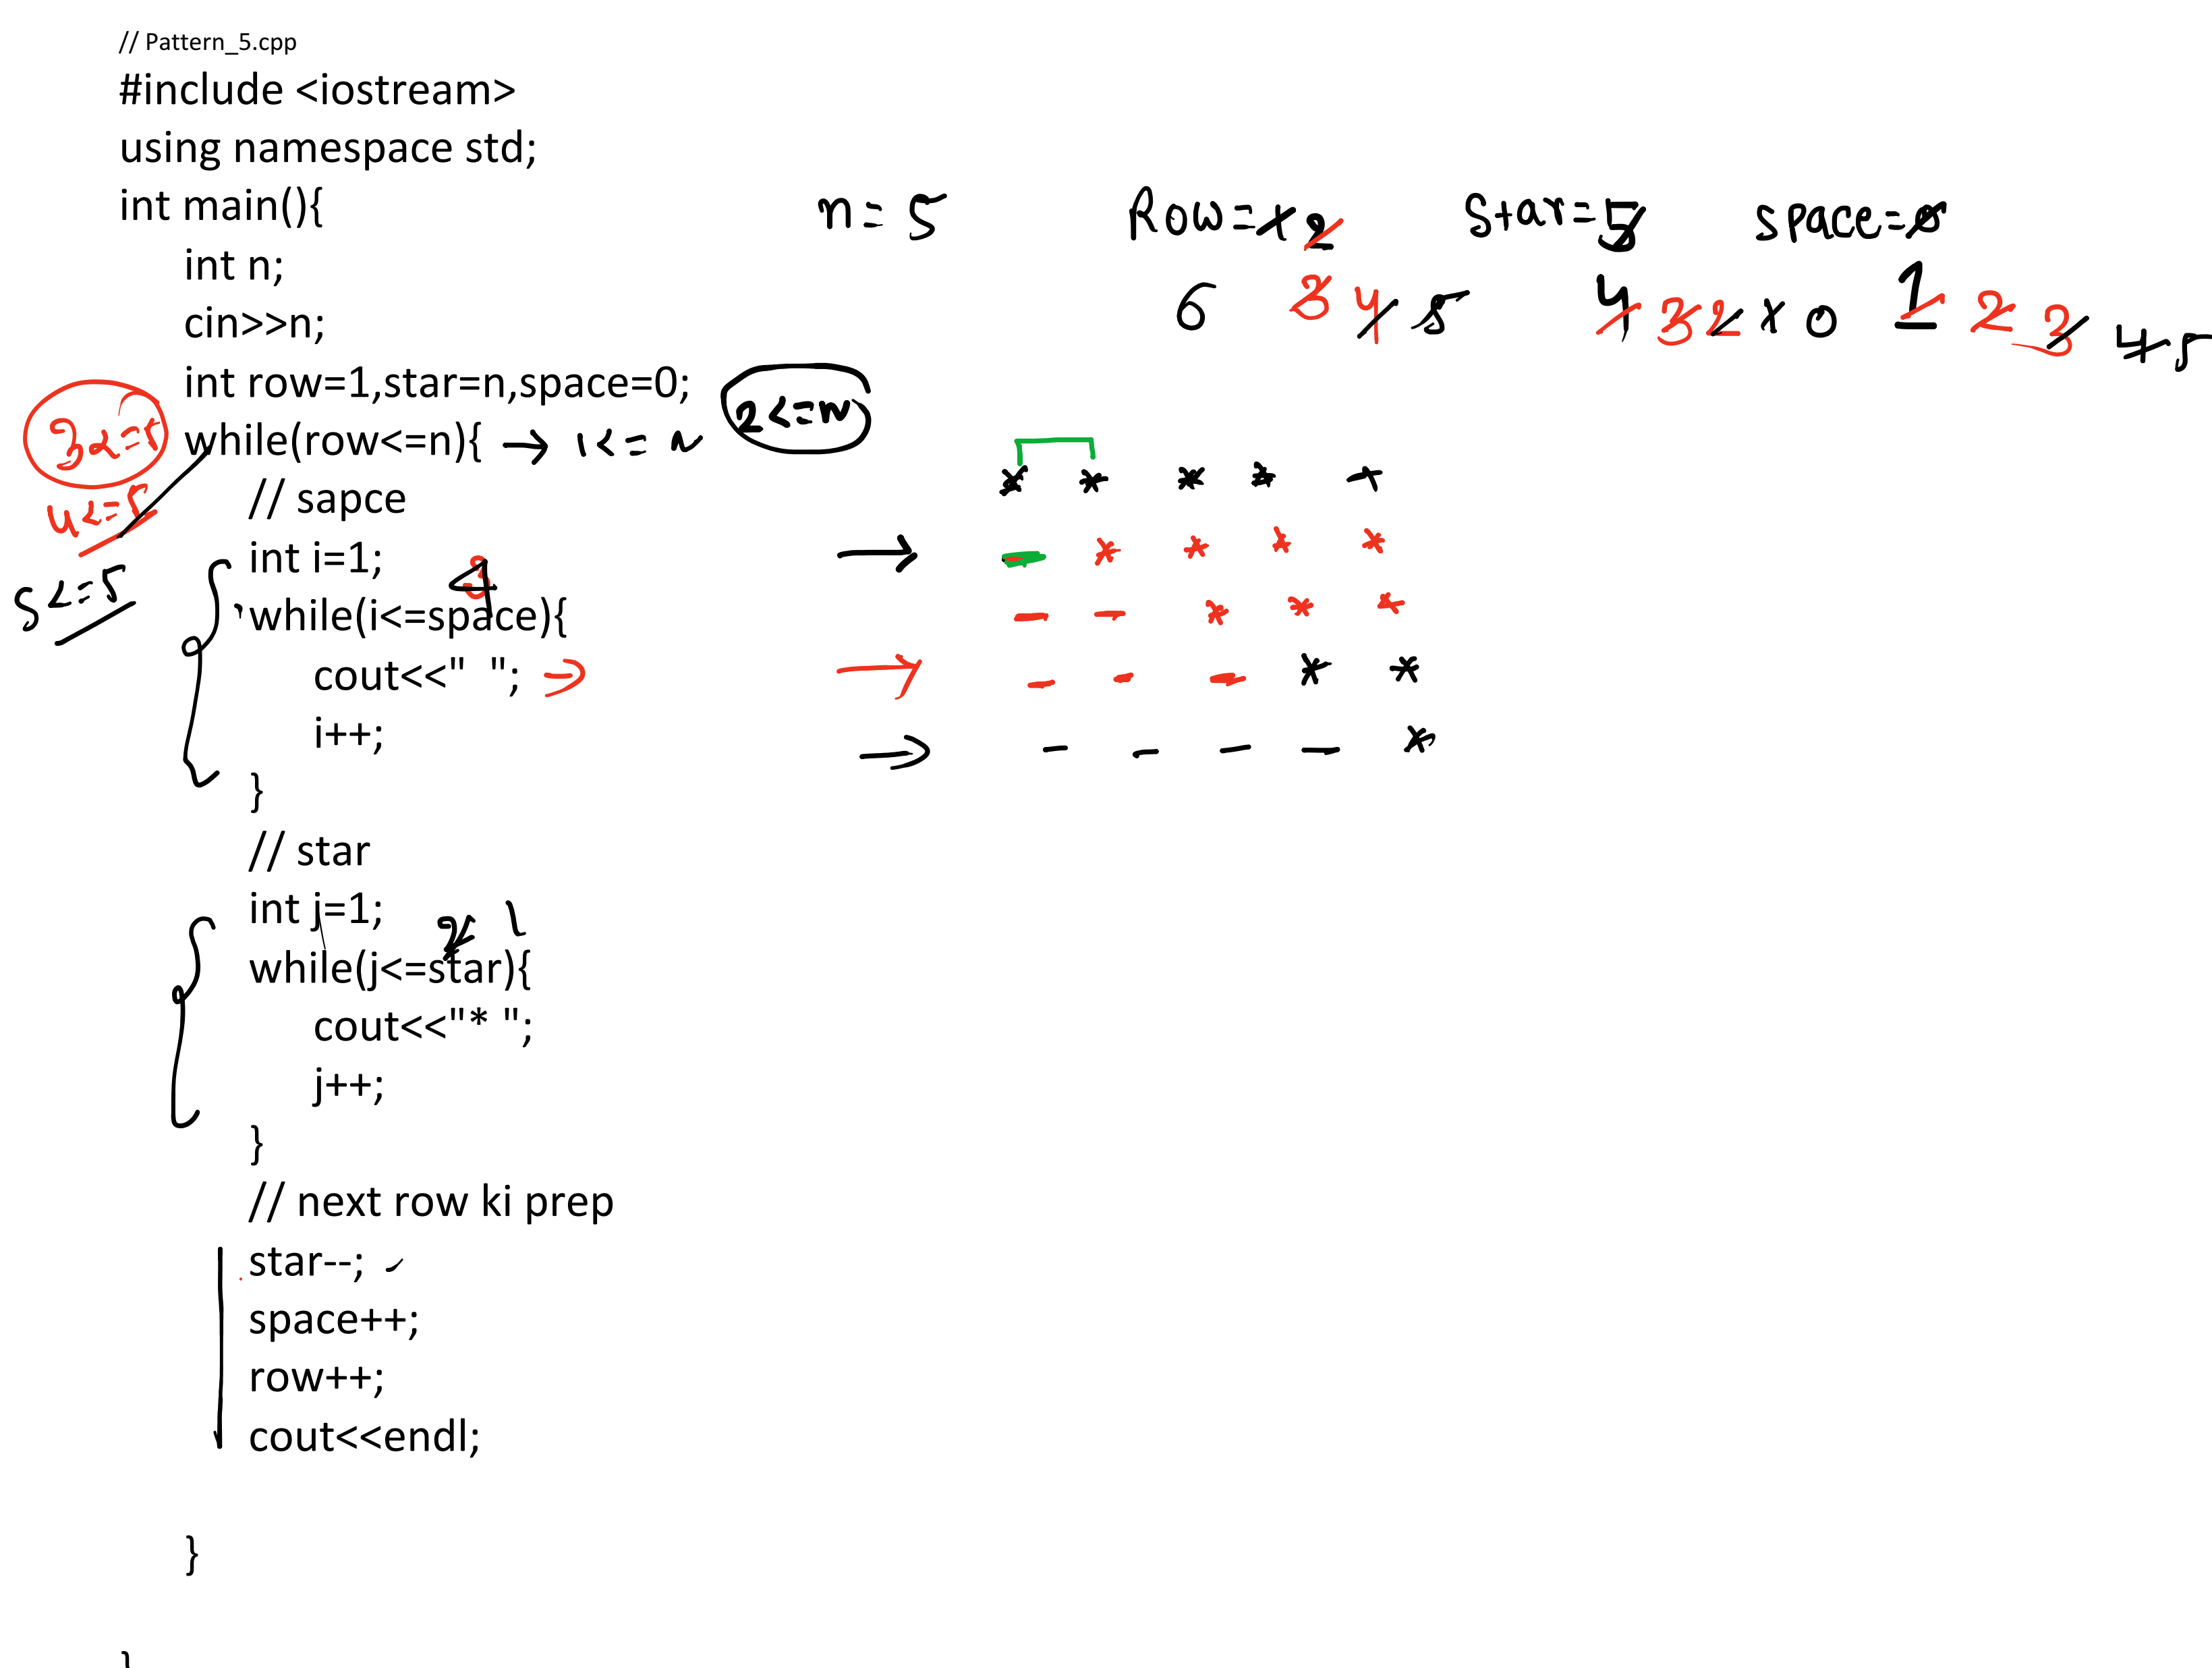 // Pattern_5.cpp
#include <iostream>
using namespace std;
int main(){
int n;
cin>>n;
int row=1,star=n,space=0;
while(row<=n){ → 1<=n
2<=n
// sapce
int i=1;
while(i<=space){
cout<<"  ";
i++;
}
// star
int j=1;
while(j<=star){
cout<<"* ";
j++;
}
// next row ki prep
star--;
space++;
row++;
cout<<endl;
}
}
3<=5
4<=5
5<=5
4
2 1
n=5 Row=1 2 Star=5 space=0
6 3 4 5 4 3 2 1 0 1 2 3 4 5
* * * * *
→ - * * * *
- - * * *
→ - - - * *
→ - - - - *